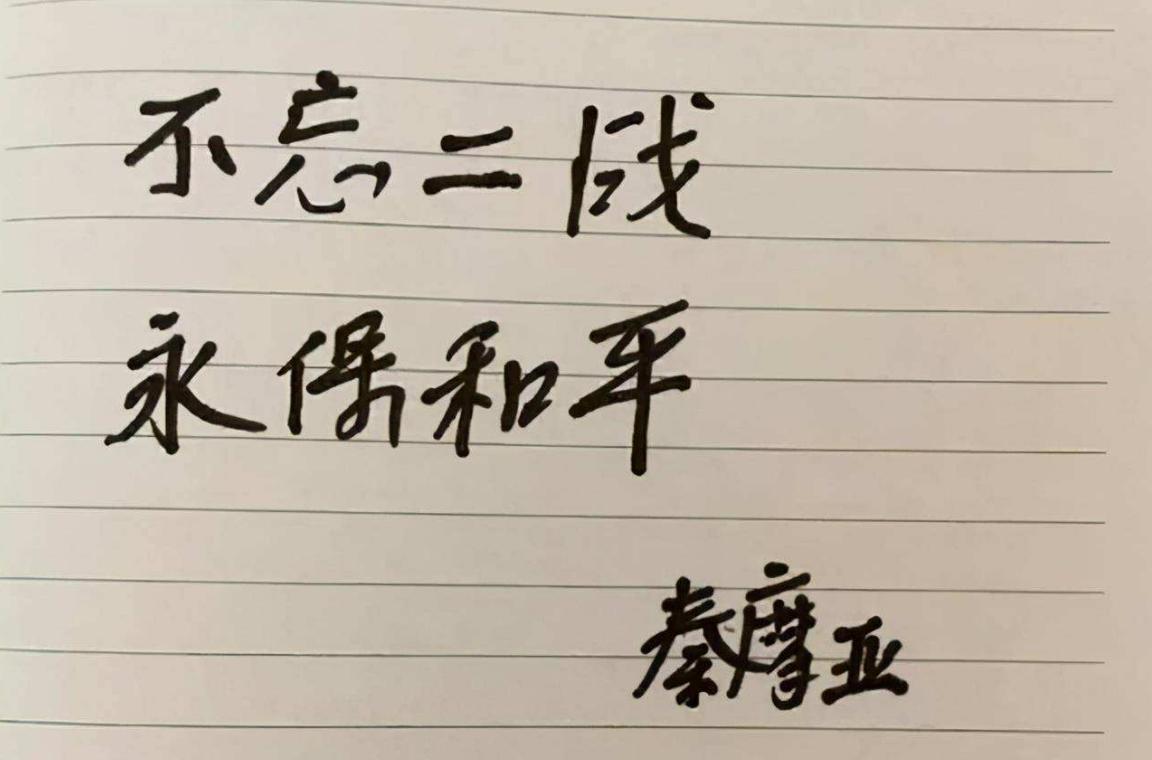 不忘二战
永保和平
秦摩亚